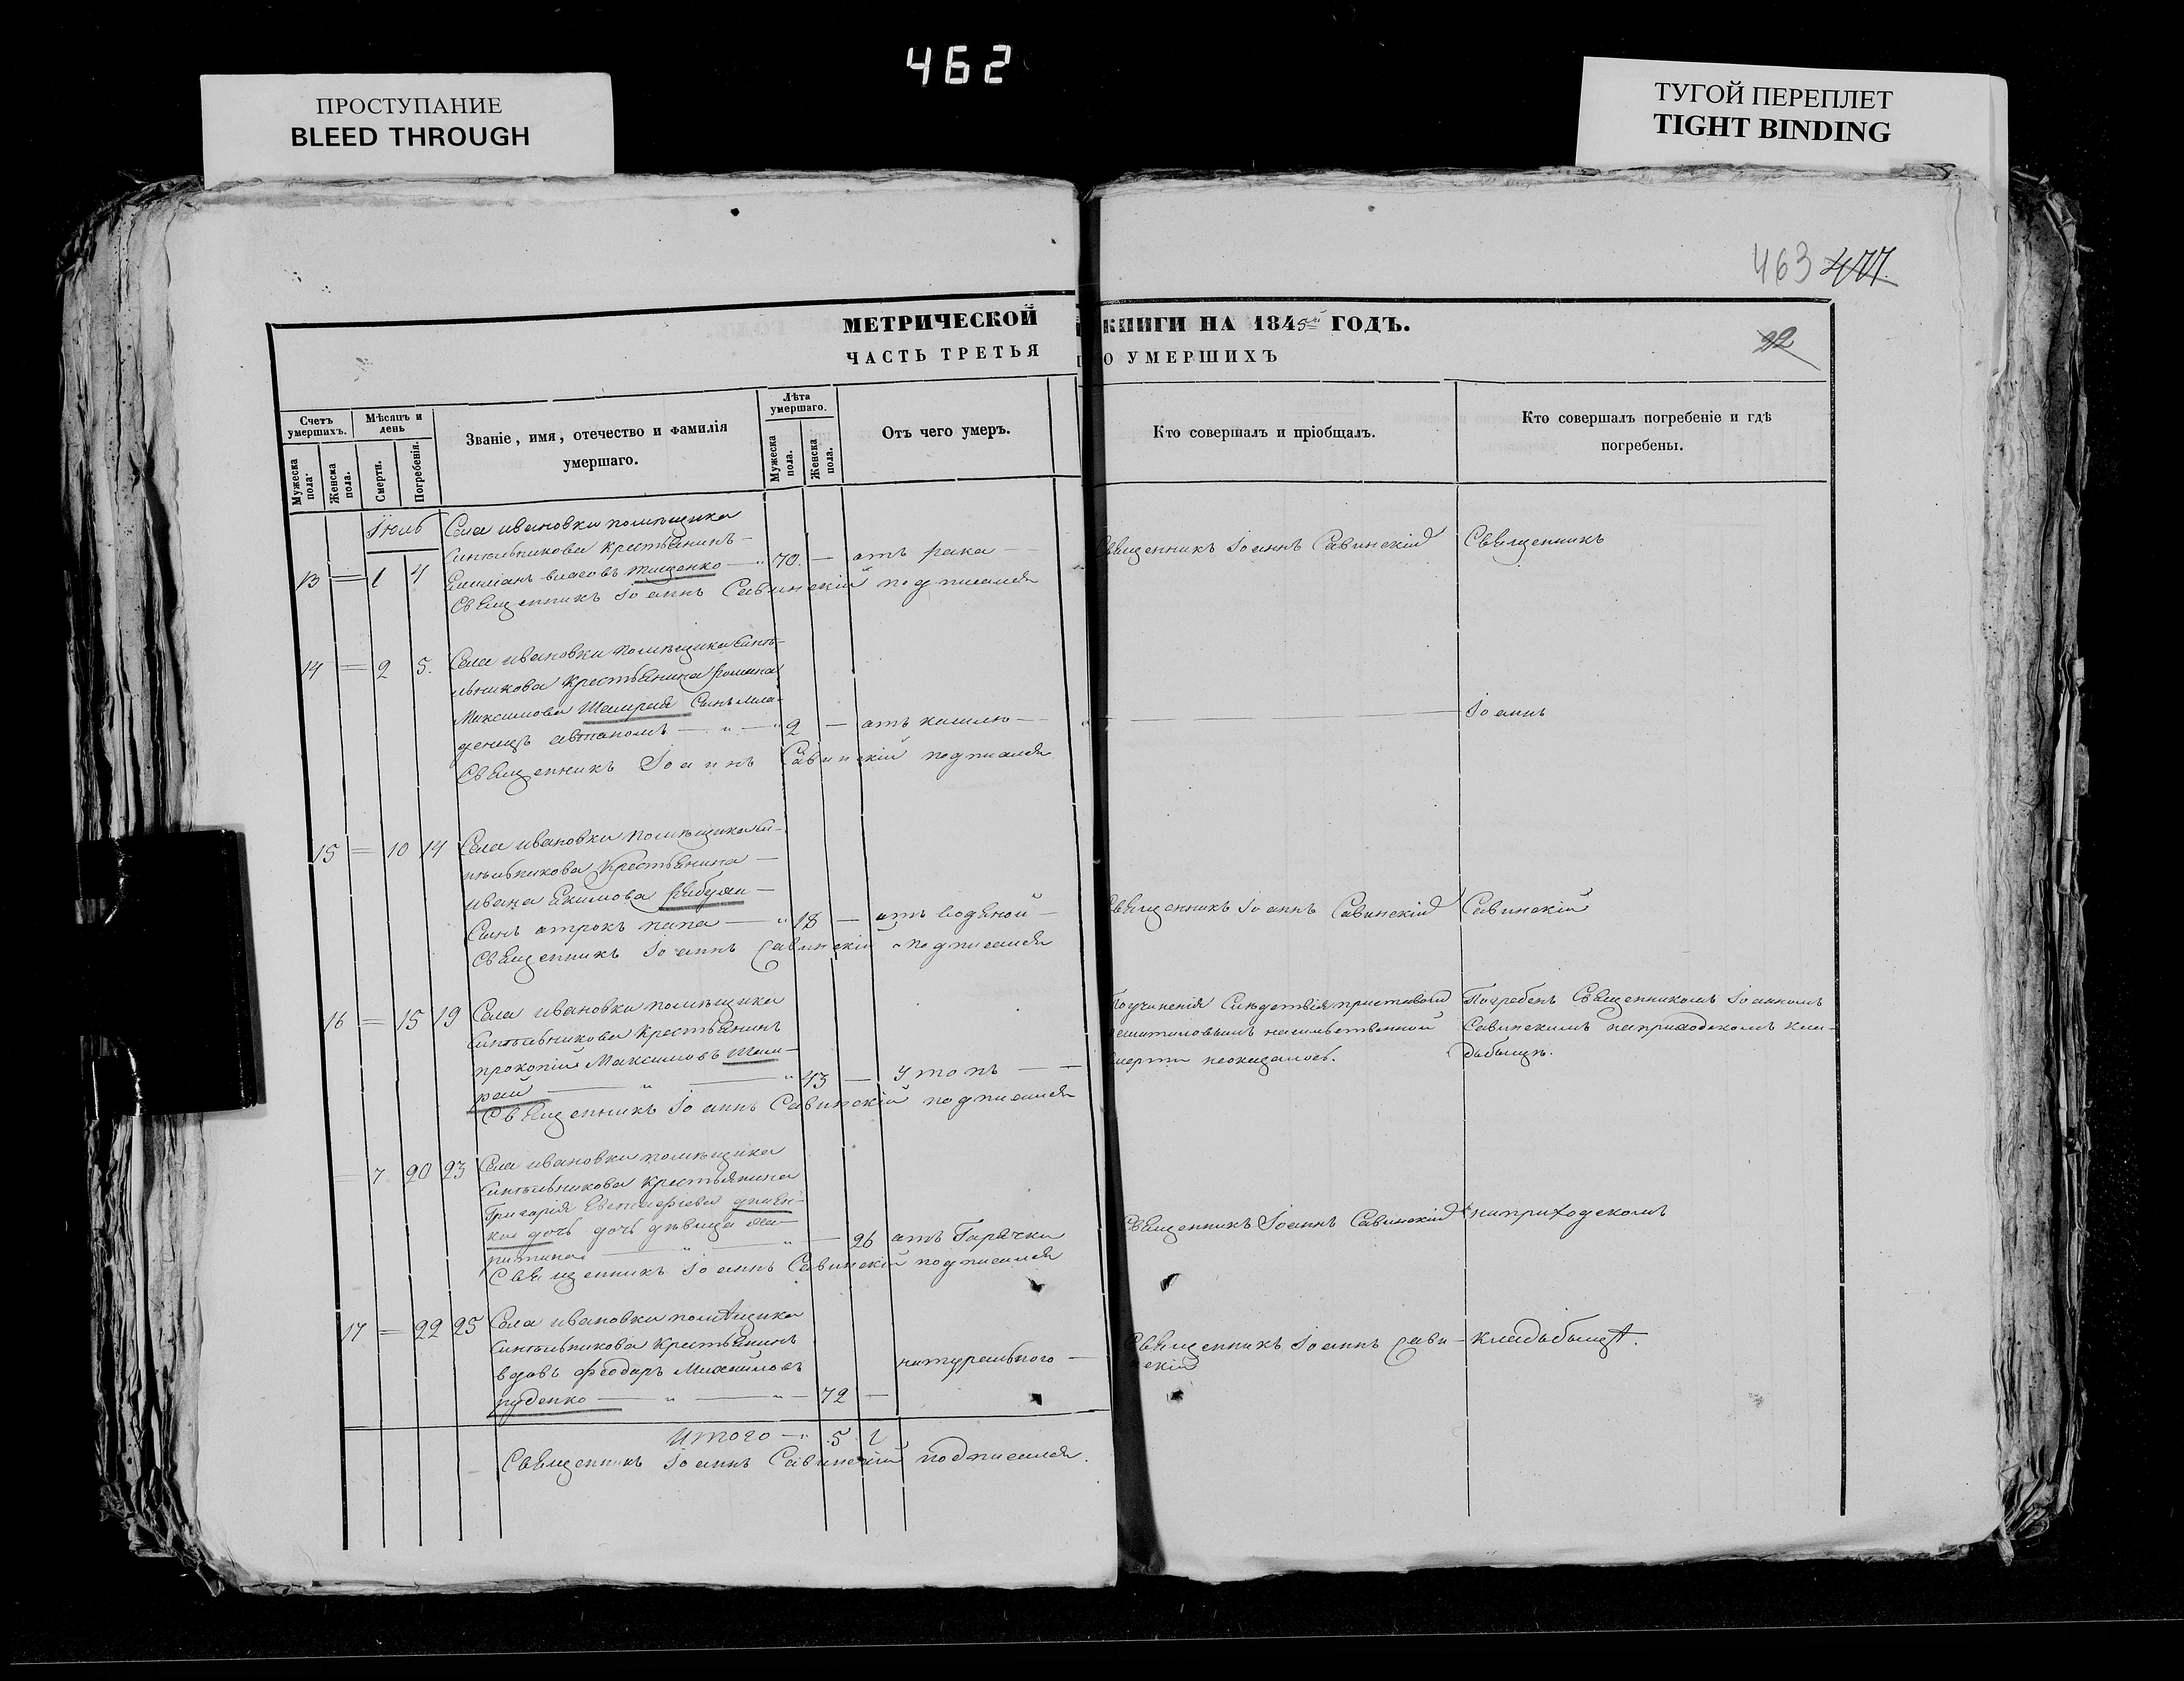 462
ПРОСТУПАНИЕ
BLEED THROUGH
ТУГОЙ ПЕРЕПЛЕТ
TIGHT BINDING
463 477
МЕТРИЧЕСКОЙ КНИГИ НА 1845й ГОДЪ.
22
ЧАСТЬ ТРЕТЬЯ О УМЕРШИХЪ
Счетъ умершихъ.
Мѣсяцъ и день
Званіе, имя, отечество и фамилія умершаго.
Лѣта умершаго.
Отъ чего умеръ.
Кто совершалъ и пріобщалъ.
Кто совершалъ погребеніе и гдѣ погребены.
Мужеска пола.
Женска пола.
Смерти.
Погребенія.
Мужеска пола.
Женска пола.
Села ивановки помѣщика
Синельникова крестьянинъ —
13 = 1 4 власовъ тищенко — 70. — отъ рака — Священникъ Іоаннъ Савинскій Священникъ
Священникъ Іоаннъ Савинскій подписался
14 = 2 5. Села ивановки помѣщика Сине-
льникова крестьянина романа
Максимова Шамрая Сынъ мла-
денецъ автаномъ — " — " 2 — отъ кашлю — Іоаннъ
Священникъ Іоаннъ Савинскій подписался
15 = 10 14 Села ивановки помѣщика Си-
нельникова Крестьянина —
ивана Екимова —
Сынъ отрокъ — " 18 — отъ водяной — Священникъ Іоаннъ Савинскій Савинскій
Священникъ Іоаннъ Савинскій подписался
16 = 15 19 Села ивановки помѣщика
Синельникова Крестьянинъ
прокопій Максимовъ Шам-
рай — " — " 43 — утопъ —
Слѣдствія приставомъ
смерти неоказалось.
Погребенъ Священникомъ Іоанномъ
Савинскимъ наприходскомъ кла-
дьбыщѣ.
Священникъ Іоаннъ Савинскій подписался
= 7 20 23 Села ивановки помѣщика
Синельникова Крестьянина
Григорія Евстафіева
дочь дѣвица
— " — " — 26 отъ Гарячки Священникъ Іоаннъ Савинскій наприходскомъ
Священникъ Іоаннъ Савинскій подписался
17 = 22 25 Села ивановки помѣщика
Синельникова Крестьянинъ
вдовъ Феодоръ Михайловъ натурального — Священникъ Іоаннъ Сави- кладьбыщѣ.
нскій
руденко — " — " — 72 —
Итого — 5 1
Священникъ Іоаннъ Савинскій подписался.